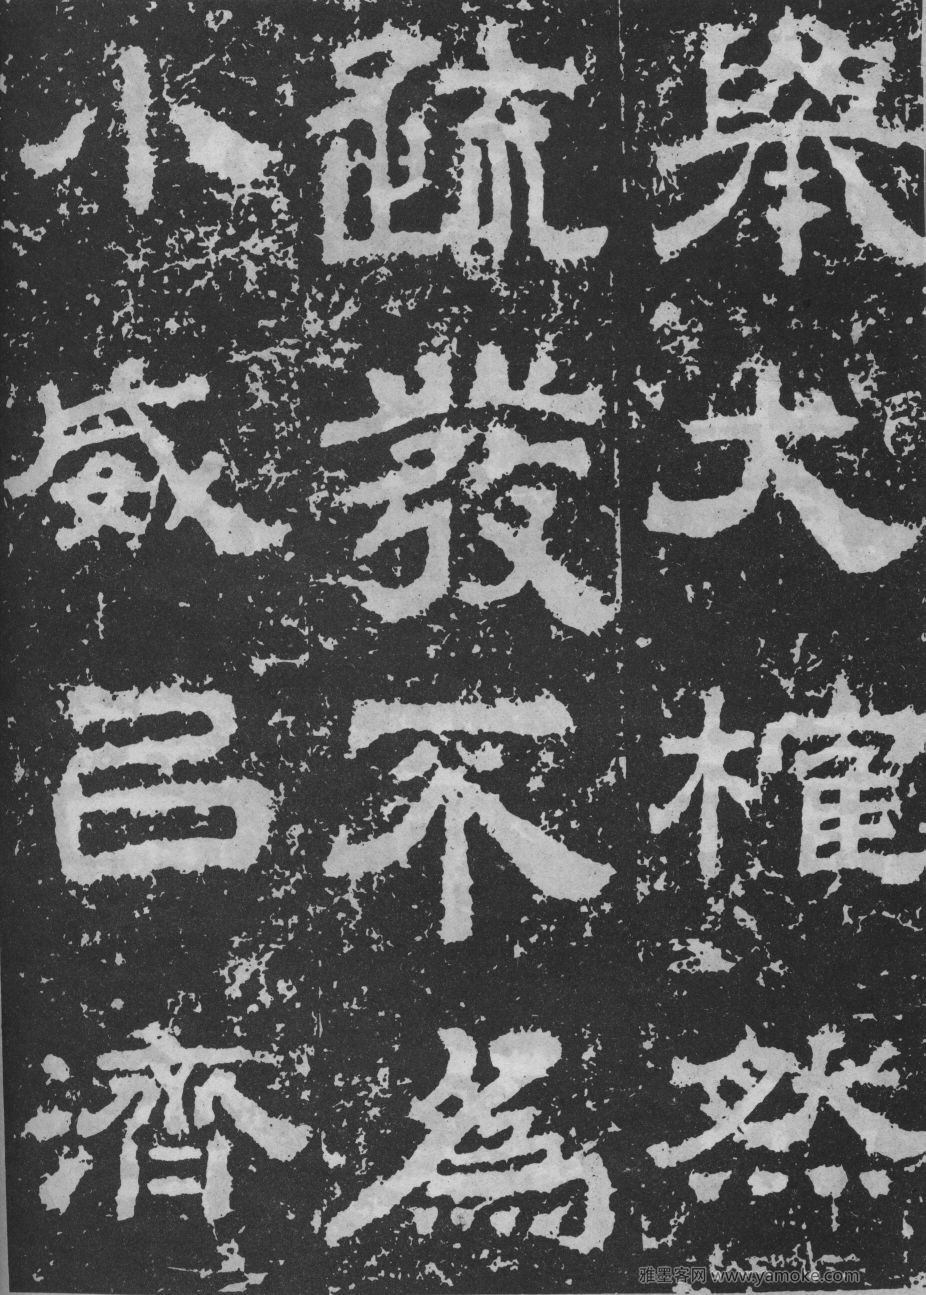 舉大榷然
疏發不為
小威以濟
雅墨客网 www.yamoke.com